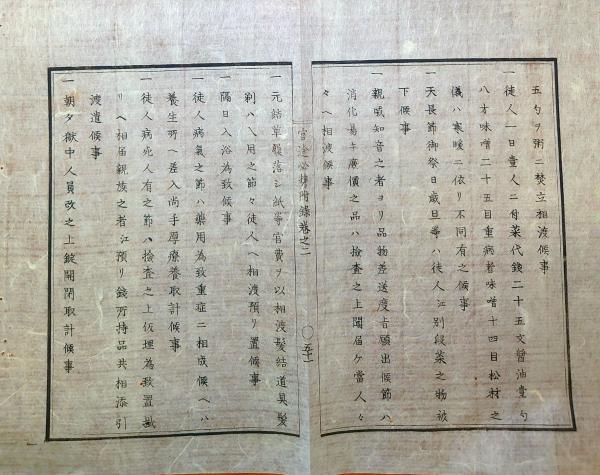 五勺ヲ粥ニ焚立相渡候事
一徒人一日壹人ニ付菜代錢二十五文醤油壹勺
八才味噌二十五目重病者味噌十四目松材之
儀ハ寒暖ニ依リ不同有之候事
一天長節御祭日歳旦等ハ徒人江別段菜之物被
下候事
一親戚知音之者ヨリ品物差送度旨願出候節ハ
消化易キ廉價之品ハ檢査之上聞届ケ當人々
々ヘ相渡候事
官途必携附錄卷之二
〇五十一
一元結草履落シ紙等官費ヲ以相渡髪結道具髪
剃ハ入用之節々徒人ヘ相渡預リ置候事
一隔日入浴為致候事
一徒人病氣之節ハ藥用為致重症ニ相成候ヘハ
養生所ヘ差入尚手厚療養取計候事
一徒人病死人有之節ハ檢查之上仮埋為致置
リヘ相届親族之者江預リ錢所持品共相添引
渡遣候事
一朝夕獄中人員改之上錠開閉取計候事